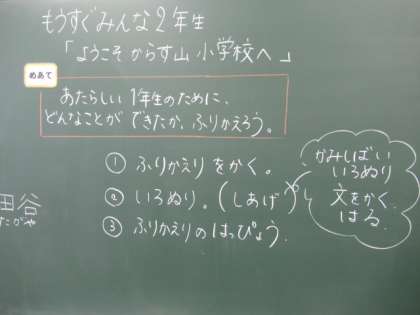 もうすぐみんな2年生
「ようこそからす山小学校へ」
めあて
あたらしい1年生のために、
どんなことができたか、ふりかえろう。
① ふりかえりをかく。
② いろぬり。(しあげ)
③ ふりかえりのはっぴょう。
かみしばい
いろぬり
文をかく
はる
田谷
たがや